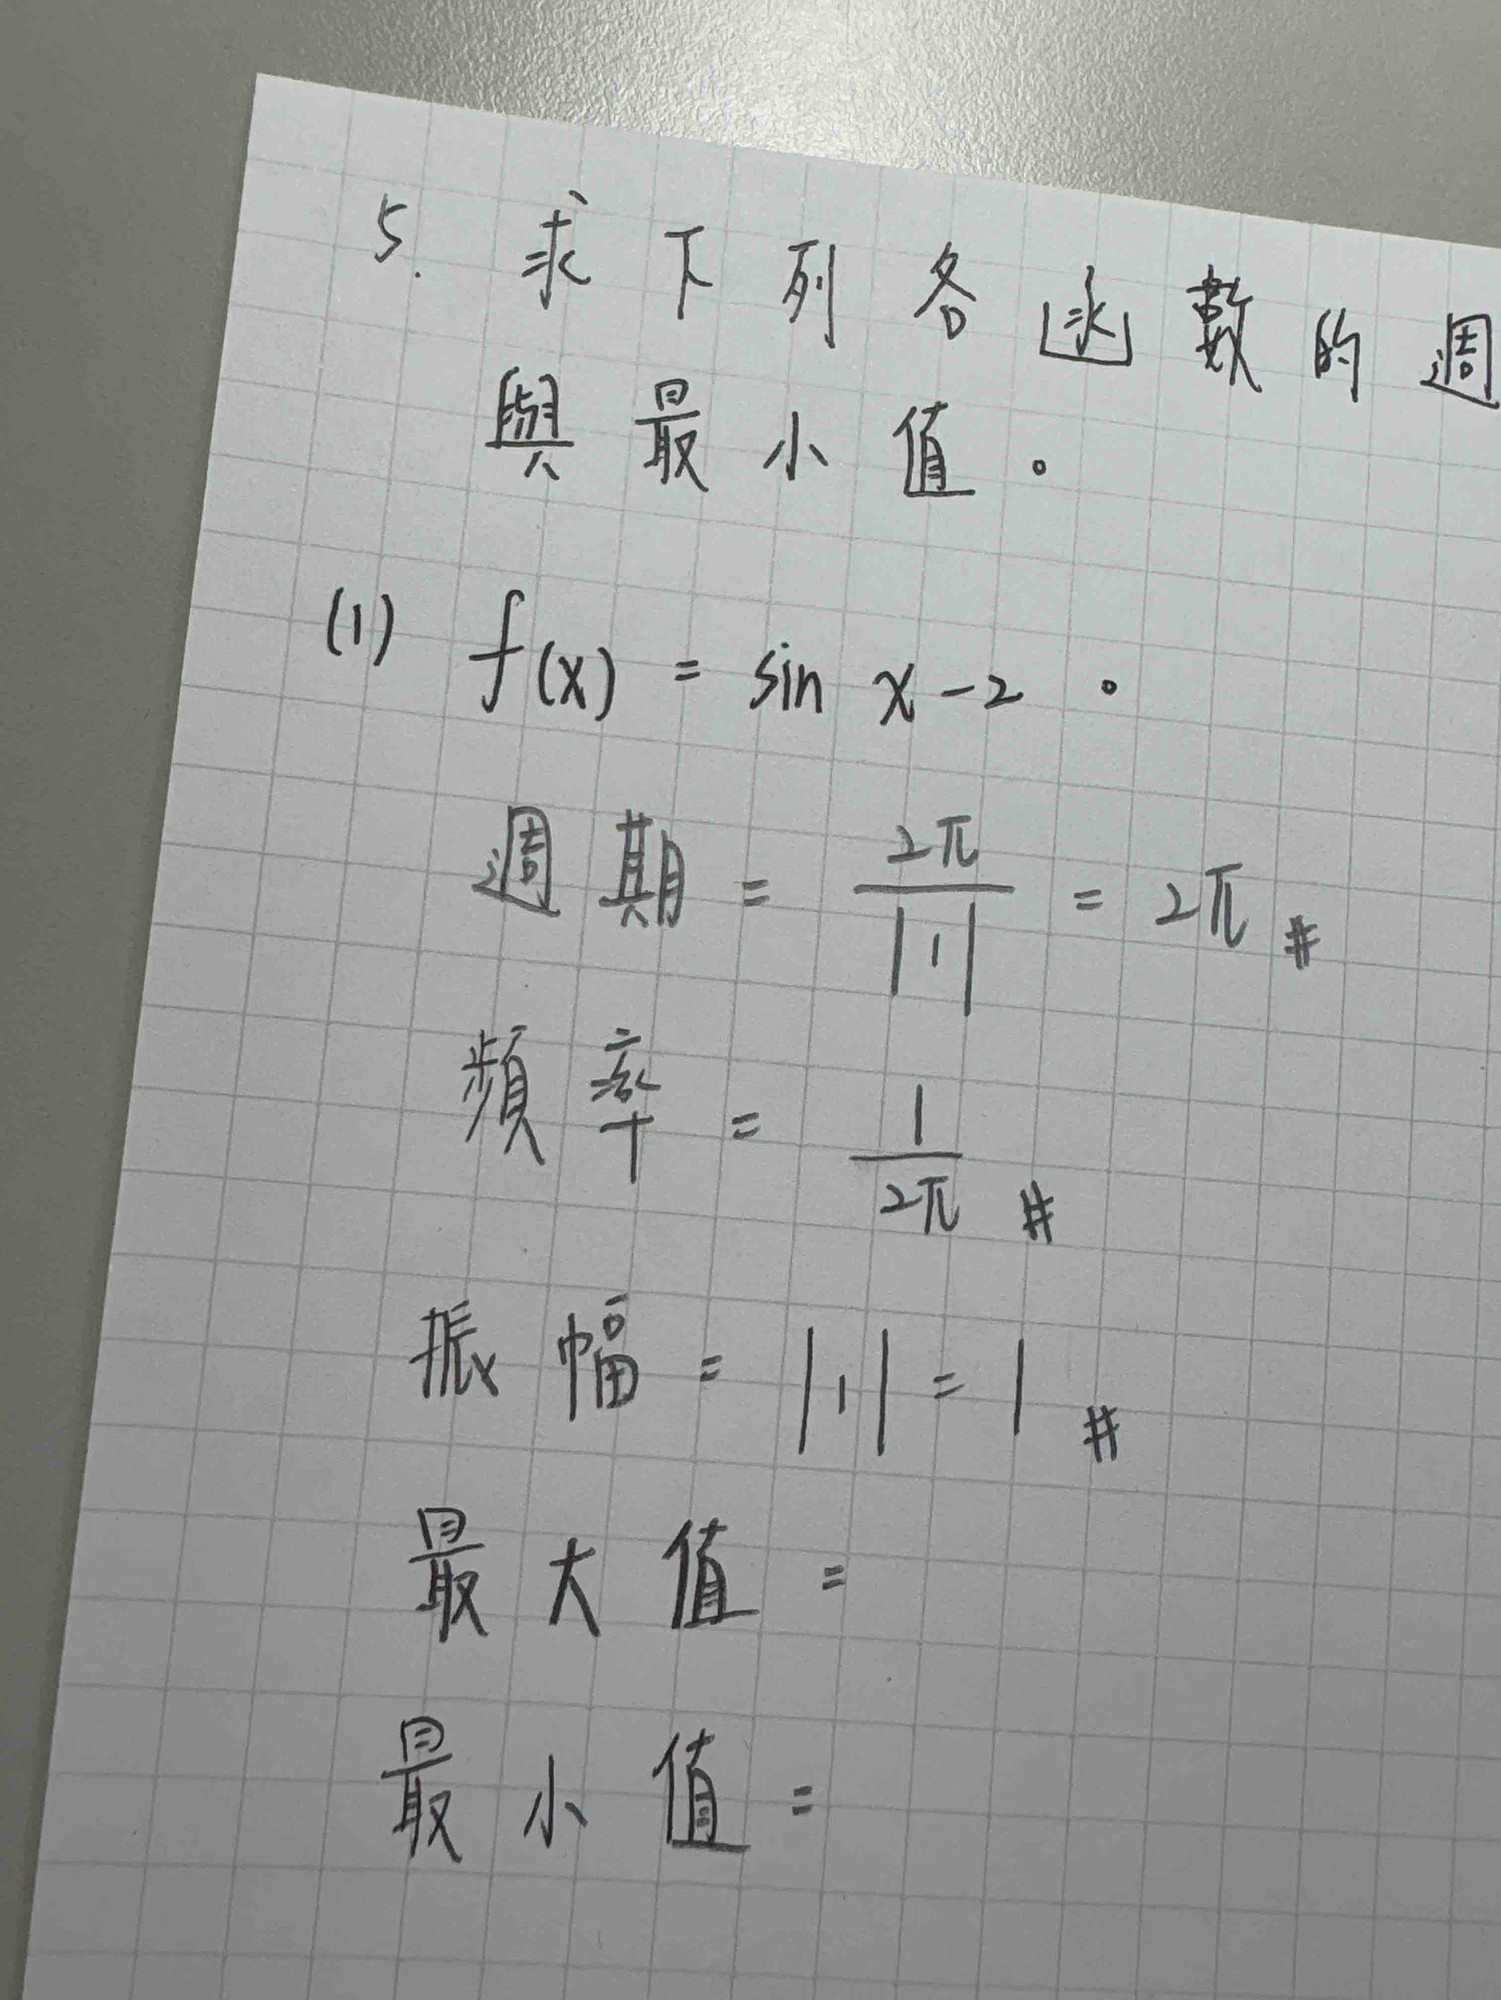 5. 求下列各函數的週
與最小值。
(1) f(x) = sin x-2 。
週期 = 2π/|1| = 2π #
頻率 = 1/2π #
振幅 = |1| = 1 #
最大值 =
最小值 =